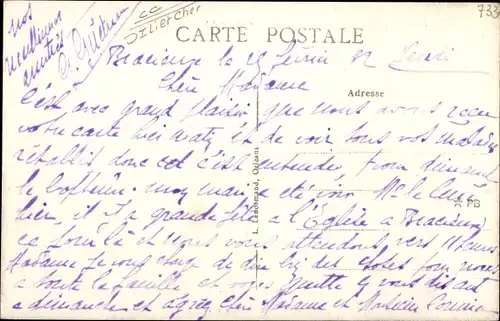 733
CC
Loir et Cher
nos
meilleures
amitiés
CARTE POSTALE
Bracieux le 29 février 32 Lundi
Chère Madame
Adresse
C'est avec grand plaisir que nous avons reçu
votre carte hier matin et de voir tous vos malades
rétablis donc cet c'est entendu, pour dimanche
le Baptême mon mari a été voir Mr le Curé
hier, il y a grande fête a l'Eglise a Bracieux
ce jour là et nous vous attendons vers 11 heures
Madame je vous charge de dire bien des choses pour nous
a toute la famille et vous dis
a dimanche et agréez chère Madame et Monsieur
L. Lenormand, Orléans
PB